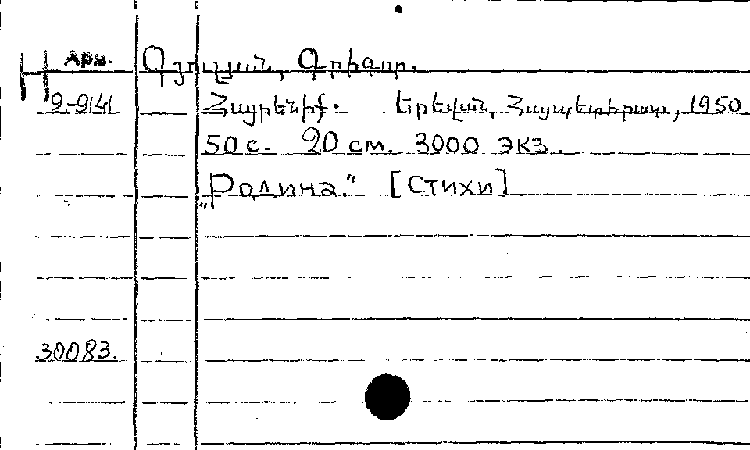 Арм.
Գյուլյան, Գրիգոր.
9-9141
Հայրենիք. Երևան, Հայպետհրատ, 1950
50 с. 20 см. 3000 экз.
„Родина." [Стихи]
30083.